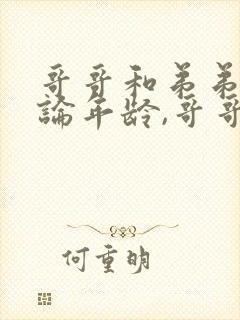 哥哥和弟弟
論年龄,哥哥
何重明